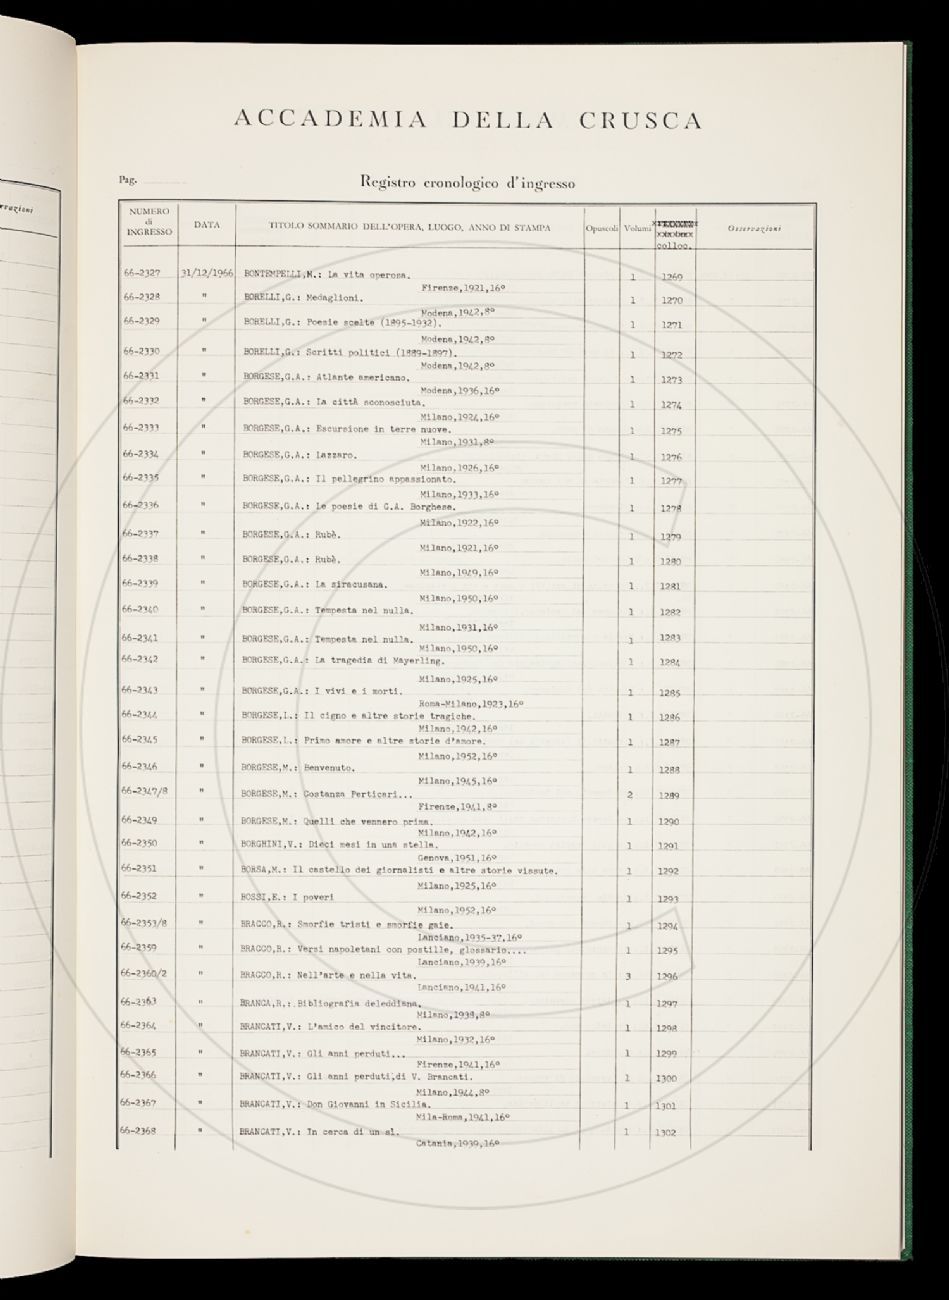 rvazioni
ACCADEMIA DELLA CRUSCA
Pag.
Registro cronologico d'ingresso
NUMERO di INGRESSO DATA TITOLO SOMMARIO DELL'OPERA, LUOGO, ANNO DI STAMPA Opuscoli Volumi colloc. Osservazioni
66-2327 31/12/1966 BONTEMPELLI,M.: La vita operosa. 1 1269
Firenze,1921,16º
66-2328 " BORELLI,G.: Medaglioni. 1 1270
Modena,1942,8º
66-2329 " BORELLI,G.: Poesie scelte (1895-1932). 1 1271
Modena,1942,8º
66-2330 " BORELLI,G.: Scritti politici (1889-1897). 1 1272
Modena,1942,8º
66-2331 " BORGESE,G.A.: Atlante americano. 1 1273
Modena,1936,16º
66-2332 " BORGESE,G.A.: La città sconosciuta. 1 1274
Milano,1924,16º
66-2333 " BORGESE,G.A.: Escursione in terre nuove. 1 1275
Milano,1931,8º
66-2334 " BORGESE,G.A.: Lazzaro. 1 1276
Milano,1926,16º
66-2335 " BORGESE,G.A.: Il pellegrino appassionato. 1 1277
Milano,1933,16º
66-2336 " BORGESE,G.A.: Le poesie di G.A. Borghese. 1 1278
Milano,1922,16º
66-2337 " BORGESE,G.A.: Rubè. 1 1279
Milano,1921,16º
66-2338 " BORGESE,G.A.: Rubè. 1 1280
Milano,1949,16º
66-2339 " BORGESE,G.A.: La siracusana. 1 1281
Milano,1950,16º
66-2340 " BORGESE,G.A.: Tempesta nel nulla. 1 1282
Milano,1931,16º
66-2341 " BORGESE,G.A.: Tempesta nel nulla. 1 1283
Milano,1950,16º
66-2342 " BORGESE,G.A.: La tragedia di Mayerling. 1 1284
Milano,1925,16º
66-2343 " BORGESE,G.A.: I vivi e i morti. 1 1285
Roma-Milano,1923,16º
66-2344 " BORGESE,L.: Il cigno e altre storie tragiche. 1 1286
Milano,1942,16º
66-2345 " BORGESE,L.: Primo amore e altre storie d'amore. 1 1287
Milano,1952,16º
66-2346 " BORGESE,M.: Benvenuto. 1 1288
Milano,1945,16º
66-2347/8 " BORGESE,M.: Costanza Perticari... 2 1289
Firenze,1941,8º
66-2349 " BORGESE,M.: Quelli che vennero prima. 1 1290
Milano,1942,16º
66-2350 " BORGHINI,V.: Dieci mesi in una stella. 1 1291
Genova,1951,16º
66-2351 " BORSA,M.: Il castello dei giornalisti e altre storie vissute. 1 1292
Milano,1925,16º
66-2352 " BOSSI,E.: I poveri 1 1293
Milano,1952,16º
66-2353/8 " BRACCO,R.: Smorfie tristi e smorfie gaie. 1 1294
Lanciano,1935-37,16º
66-2359 " BRACCO,R.: Versi napoletani con postille, glossario.... 1 1295
Lanciano,1939,16º
66-2360/2 " BRACCO,R.: Nell'arte e nella vita. 3 1296
Lanciano,1941,16º
66-2363 " BRANCA,R.: Bibliografia deleddiana. 1 1297
Milano,1938,8º
66-2364 " BRANCATI,V.: L'amico del vincitore. 1 1298
Milano,1932,16º
66-2365 " BRANCATI,V.: Gli anni perduti... 1 1299
Firenze,1941,16º
66-2366 " BRANCATI,V.: Gli anni perduti,di V. Brancati. 1 1300
Milano,1944,8º
66-2367 " BRANCATI,V.: Don Giovanni in Sicilia. 1 1301
Mila-Roma,1941,16º
66-2368 " BRANCATI,V.: In cerca di un sì. 1 1302
Catania,1939,16º